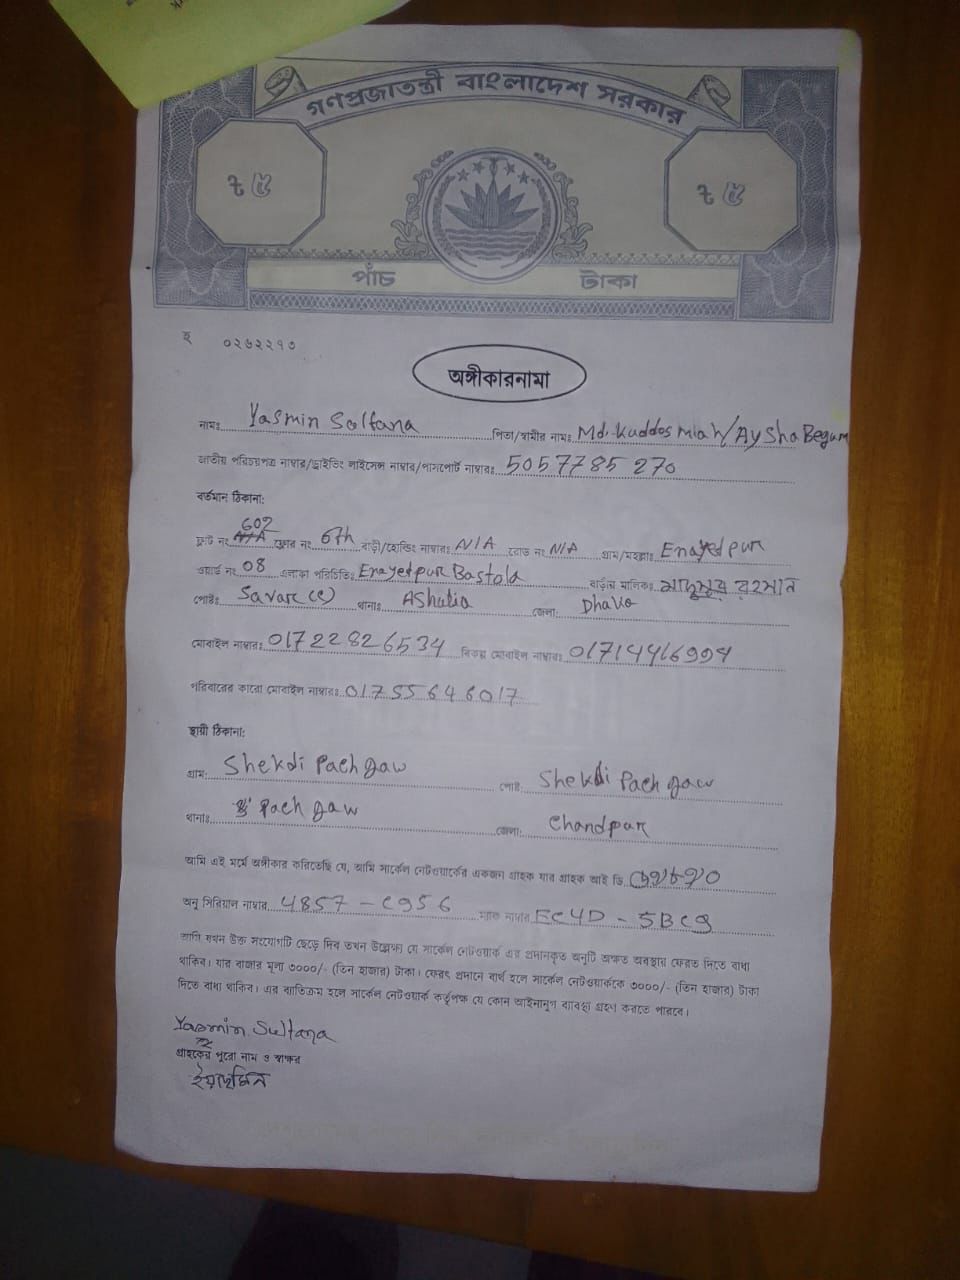 গণপ্রজাতন্ত্রী বাংলাদেশ সরকার
৳ ৫ ৳ ৫
পাঁচ টাকা
০২৬২২১৩
অঙ্গীকারনামা
নামঃ Yasmin Sultana পিতা/স্বামীর নামঃ Md. Kuddos Miah/Aysha Begum
জাতীয় পরিচয়পত্র নাম্বার/ড্রাইভিং লাইসেন্স নাম্বার/পাসপোর্ট নাম্বারঃ 5057785270
বর্তমান ঠিকানা:
ফ্লাট নং 602 ফ্লোর নং 6th বাড়ী/হোল্ডিং নাম্বারঃ N/A রোড নং N/A গ্রাম/মহল্লাঃ Enayedpur
ওয়ার্ড নং 08 এলাকা পরিচিতিঃ Enayedpur Bastola বাড়ীর মালিকঃ রহমান
পোষ্টঃ Savar (c) থানাঃ AShulia জেলা: Dhaka
মোবাইল নাম্বারঃ 01722826534 বিকল্প মোবাইল নাম্বারঃ 01714416994
পরিবারের কারো মোবাইল নাম্বারঃ 01755646017
স্থায়ী ঠিকানা:
গ্রাম: Shekdi Pach gaw পোষ্ট: Shekdi Pach gaw
থানাঃ Pach gaw জেলা: Chandpur
আমি এই মর্মে অঙ্গীকার করিতেছি যে, আমি সার্কেল নেটওয়ার্কের একজন গ্রাহক যার গ্রাহক আই ডি
অনু সিরিয়াল নাম্বার 4857-C956 ম্যাক নাম্বার EC4D-5BC9
আমি যখন উক্ত সংযোগটি ছেড়ে দিব তখন উল্লেখ্য যে সার্কেল নেটওয়ার্ক এর প্রদানকৃত অনুটি অক্ষত অবস্থায় ফেরত দিতে বাধ্য
থাকিব। যার বাজার মূল্য ৩০০০/- (তিন হাজার) টাকা। ফেরৎ প্রদানে ব্যর্থ হলে সার্কেল নেটওয়ার্ককে ৩০০০/- (তিন হাজার) টাকা
দিতে বাধ্য থাকিব। এর ব্যতিক্রম হলে সার্কেল নেটওয়ার্ক কর্তৃপক্ষ যে কোন আইনানুগ ব্যবস্থা গ্রহণ করতে পারবে।
Yasmin Sultana
গ্রাহকের পুরো নাম ও স্বাক্ষর
ইয়াছমিন